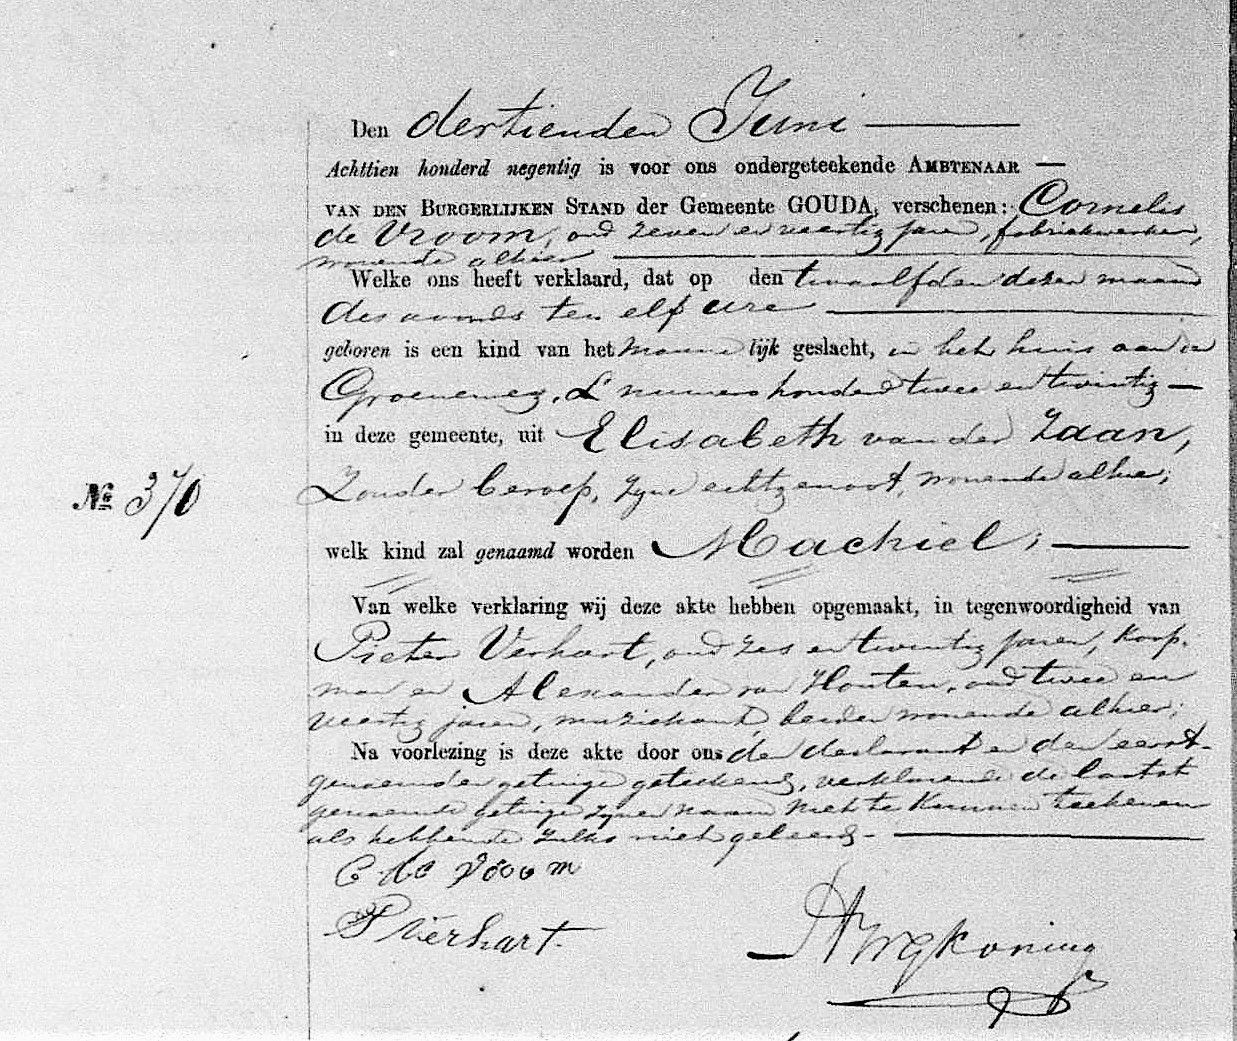 Den dertienden Juni
Achttien honderd negentig is voor ons ondergeteekende AMBTENAAR
VAN DEN BURGERLIJKEN STAND der Gemeente GOUDA, verschenen: Cornelis
de Vroom, oud zeven en veertig jaren, fabriekwerker,
wonende alhier
Welke ons heeft verklaard, dat op den twaalfden dezer maand
des avonds ten elf ure
geboren is een kind van het mannelijk geslacht, in het huis aan de
Groeneweg, L nummer honderd twee en twintig
in deze gemeente, uit Elisabeth van der Zaan,
zonder beroep, zyne echtgenoot, wonende alhier;
№ 370
welk kind zal genaamd worden Machiel;
Van welke verklaring wij deze akte hebben opgemaakt, in tegenwoordigheid van
Pieter Verhart, oud zes en twintig jaren, koop-
man en Alexander van Houten, oud twee en
veertig jaren, muziekant, beiden wonende alhier;
Na voorlezing is deze akte door ons, den declarant en den eerst-
genoemden getuige geteekend, verklarende de laatst
genoemde getuige zynen naam niet te kunnen teekenen
als hebbende zulks niet geleerd.
C de Vroom
P Verhart.
Koning